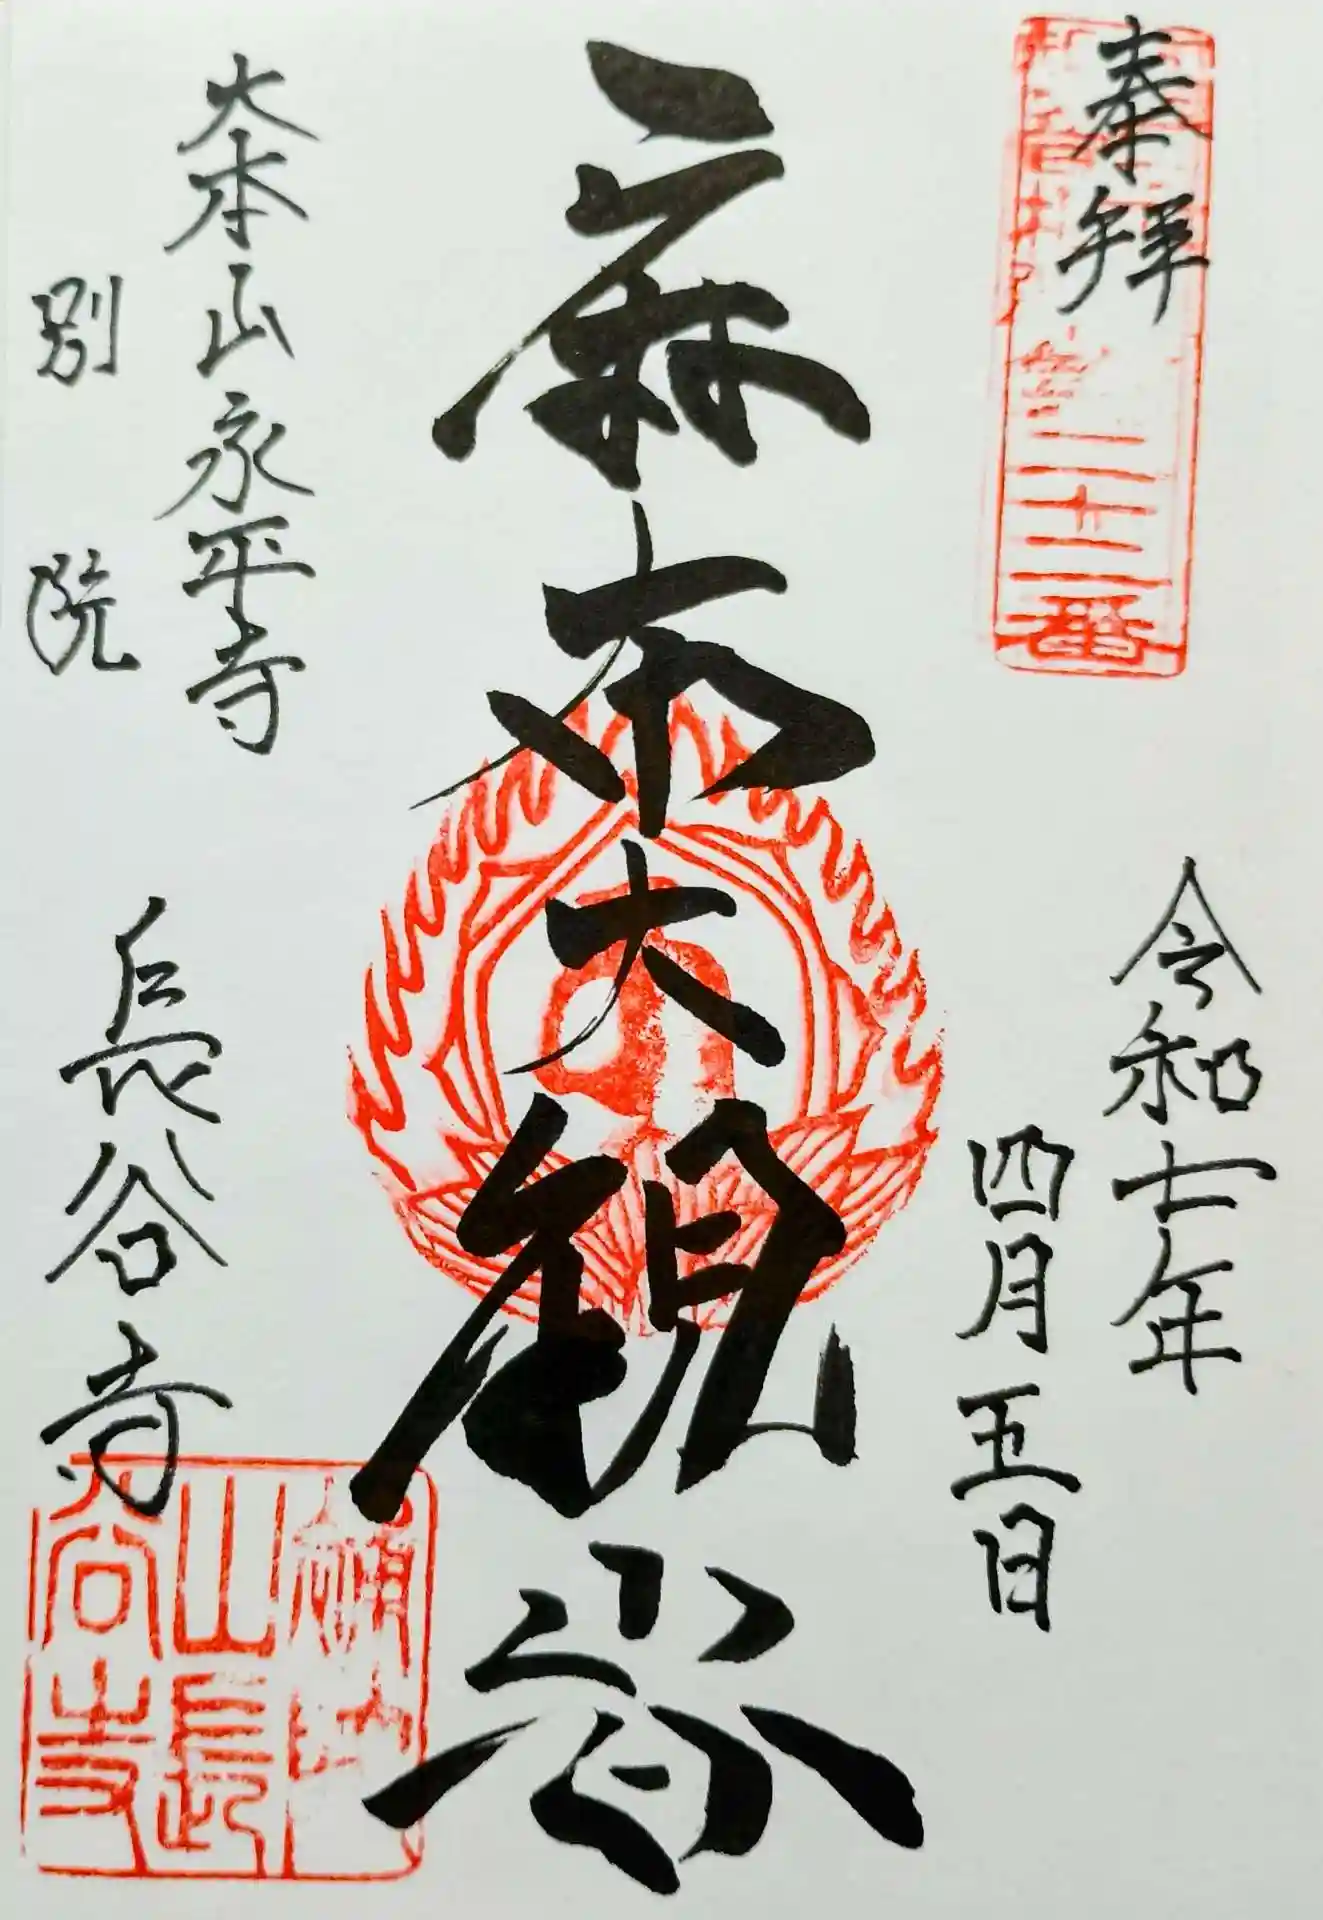 奉拝
二十二番
令和七年
四月五日
麻布大観音
大本山永平寺
別院
長谷寺
山長谷寺